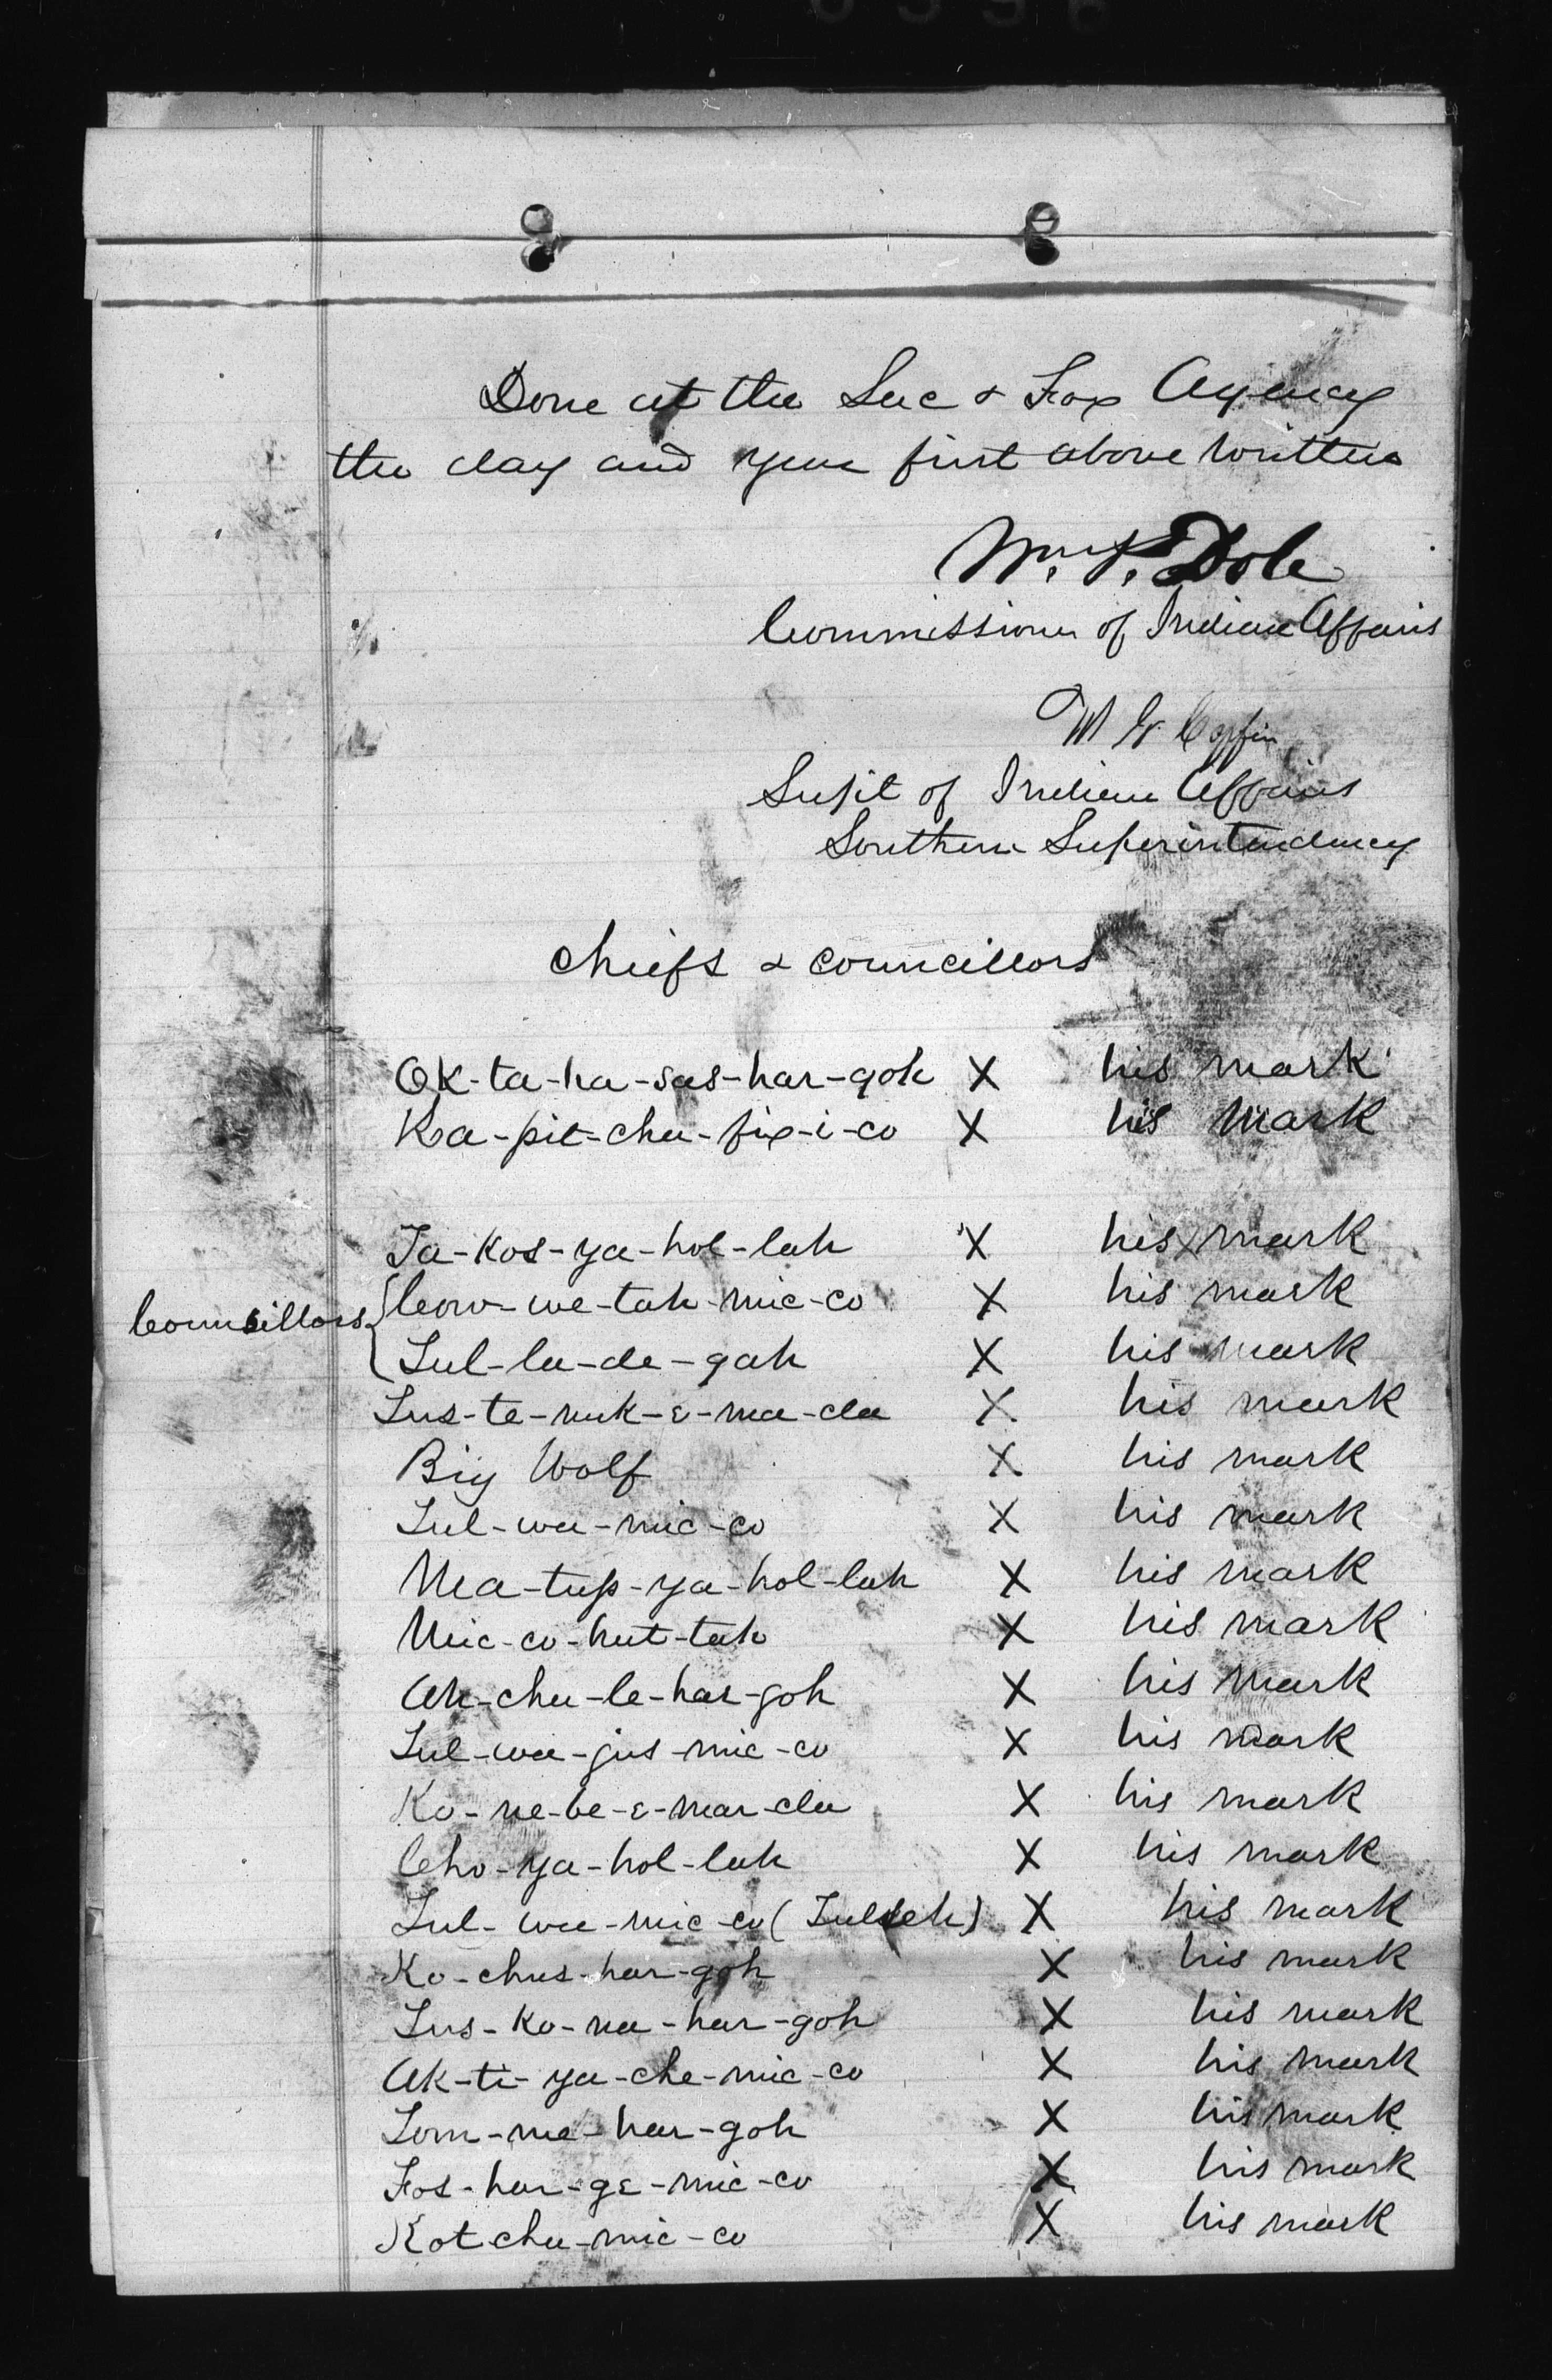 Done at the Sac & Fox Agency
the day and year first above written
Wm. P. Dole
Commissioner of Indian Affairs
W G Coffin
Supt of Indian Affairs
Southern Superintendency
Chiefs & Councillors
Ok-ta-ha-sas-har-goh X his mark
Ka-pit-cha-fix-i-co X his mark
Ta-kos-ya-hol-lah X his mark
Councillors { Cow-we-tah-mic-co X his mark
Tul-la-de-gah X his mark
Tus-te-nuk-e-ma-da X his mark
Big Wolf X his mark
Tul-wa-mic-co X his mark
Ma-tup-ya-hol-lah X his mark
Mic-co-hut-tah X his mark
Ah-cha-le-har-goh X his mark
Tul-wa-jus-mic-co X his mark
Ko-ne-be-e-mar-da X his mark
Cho-ya-hol-lah X his mark
Tul-wa-mic-co (Tulseh) X his mark
Ko-chus-har-goh X his mark
Tus-ko-na-har-goh X his mark
Ak-ti-ya-che-mic-co X his mark
Tom-me-har-goh X his mark
Fos-har-ge-mic-co X his mark
Kot cha-mic-co X his mark